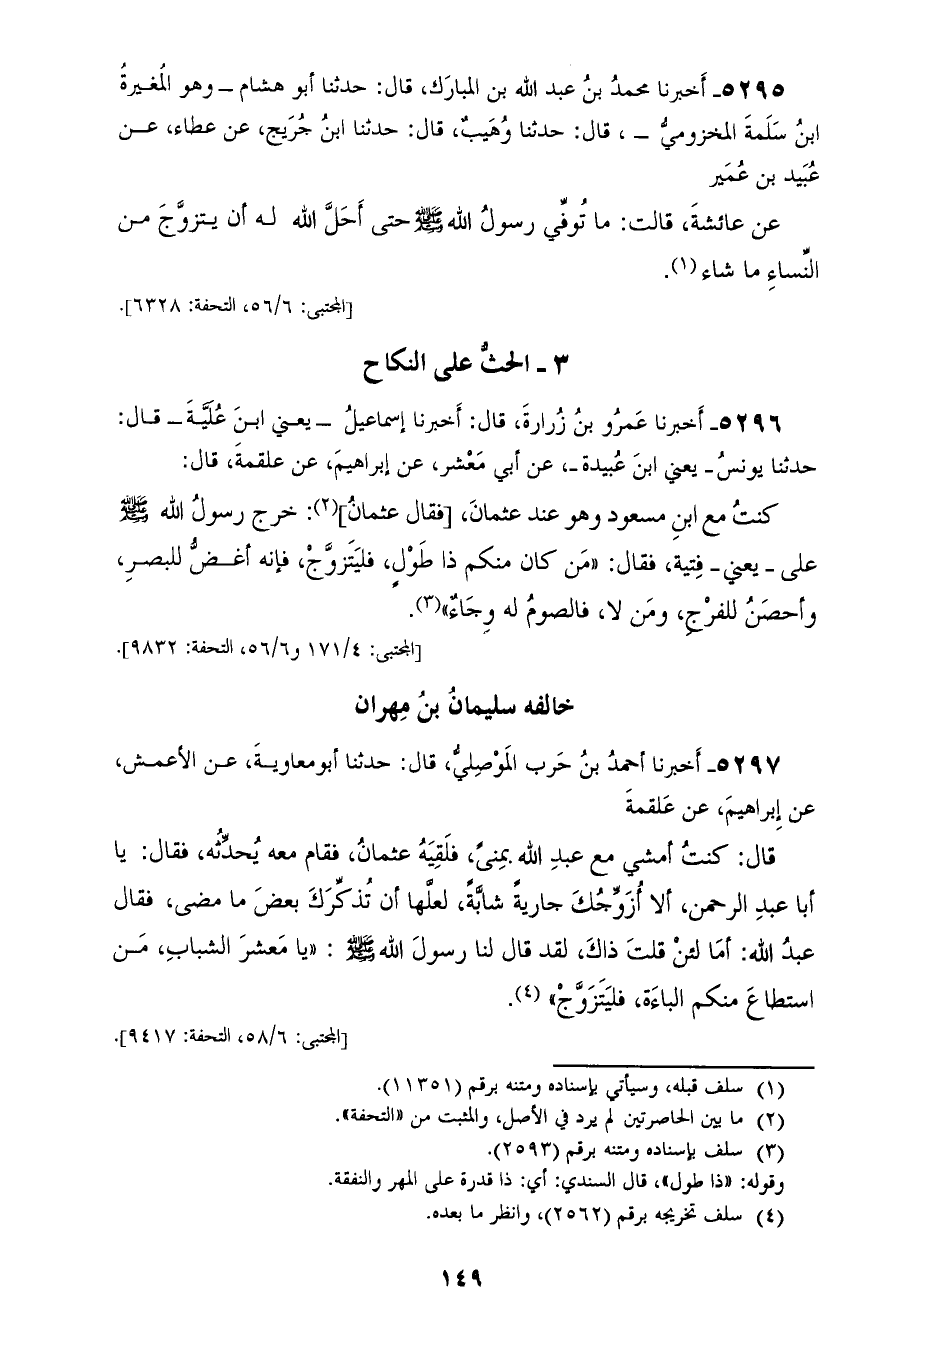 ٥٢٩٥ـ أَخبرنا محمدُ بنُ عبد الله بن المبارك، قال: حدثنا أبو هشام ــ وهو المُغيرةُ
ابنُ سَلَمةَ المخزوميُّ ــ ، قال: حدثنا وُهَيبٌ، قال: حدثنا ابنُ جُرَيج، عن عطاء، عـن
عُبَيد بن عُمَير
عن عائشةَ، قالت: ما تُوفِّي رسولُ الله ﷺ حتى أَحَلَّ الله له أن يتزوَّجَ مـن
النِّساءِ ما شاء (١).
[المجتبى: ٥٦/٦، التحفة: ٦٣٢٨].
٣ ـ الحثُّ على النكاح
٥٢٩٦ـ أَخبرنا عَمرُو بنُ زُرارةَ، قال: أَخبرنا إسماعيلُ ــ يعـني ابـنَ عُلَيَّـةَ ــ قـال:
حدثنا يونسُ ـ يعني ابنَ عُبيدة ـ، عن أبي مَعْشر، عن إبراهيمَ، عن علقمةَ، قال:
كنتُ مع ابنِ مسعود وهو عند عثمانَ، [فقال عثمانُ](٢): خرج رسولُ الله ﷺ
على ـ يعني ـ فِتية، فقال: «مَن كان منكم ذا طَوْلٍ، فليَتَزوَّجْ، فإنه أغـضُّ للبصـرِ،
وأحصَنُ للفرْجِ، ومَن لا، فالصومُ له وِجَاءٌ»(٣).
[المجتبى: ١٧١/٤ و٥٦/٦، التحفة: ٩٨٣٢].
خالفه سليمانُ بنُ مِهران
٥٢٩٧ـ أَخبرنا أحمدُ بنُ حَرب المَوْصِليُّ، قال: حدثنا أبو معاويـةَ، عـن الأعمـش،
عن إبراهيمَ، عن عَلقمةَ
قال: كنتُ أمشي مع عبدِ الله بمِنىً، فلَقِيَهُ عثمانُ، فقام معه يُحدِّثُه، فقال: يا
أبا عبدِ الرحمن، ألا أُزَوِّجُكَ جاريةً شابَّةً، لعلَّها أن تُذكِّرَكَ بعضَ ما مضى، فقال
عبدُ الله: أمَا لئنْ قلتَ ذاكَ، لقد قال لنا رسولُ الله ﷺ : «يا مَعشرَ الشبابِ، مَـن
استطاعَ منكم الباءَة، فليَتَزَوَّجْ» (٤).
[المجتبى: ٥٨/٦، التحفة: ٩٤١٧].
(١) سلف قبله، وسيأتي بإسناده ومتنه برقم (١١٣٥١).
(٢) ما بين الحاصرتين لم يرد في الأصل، والمثبت من «التحفة».
(٣) سلف بإسناده ومتنه برقم (٢٥٩٣).
وقوله: «ذا طول»، قال السندي: أي: ذا قدرة على المهر والنفقة.
(٤) سلف تخريجه برقم (٢٥٦٢)، وانظر ما بعده.
١٤٩